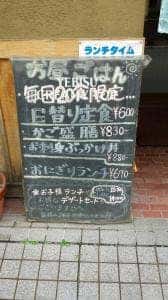 ランチタイム
お昼ごはん
YEBISU
毎日20食限定…
日替り定食 ¥600
かご盛膳 ¥830
お刺身ぶっかけ丼 ¥880
おにぎりランチ ¥670
お子様ランチ
デザートセット